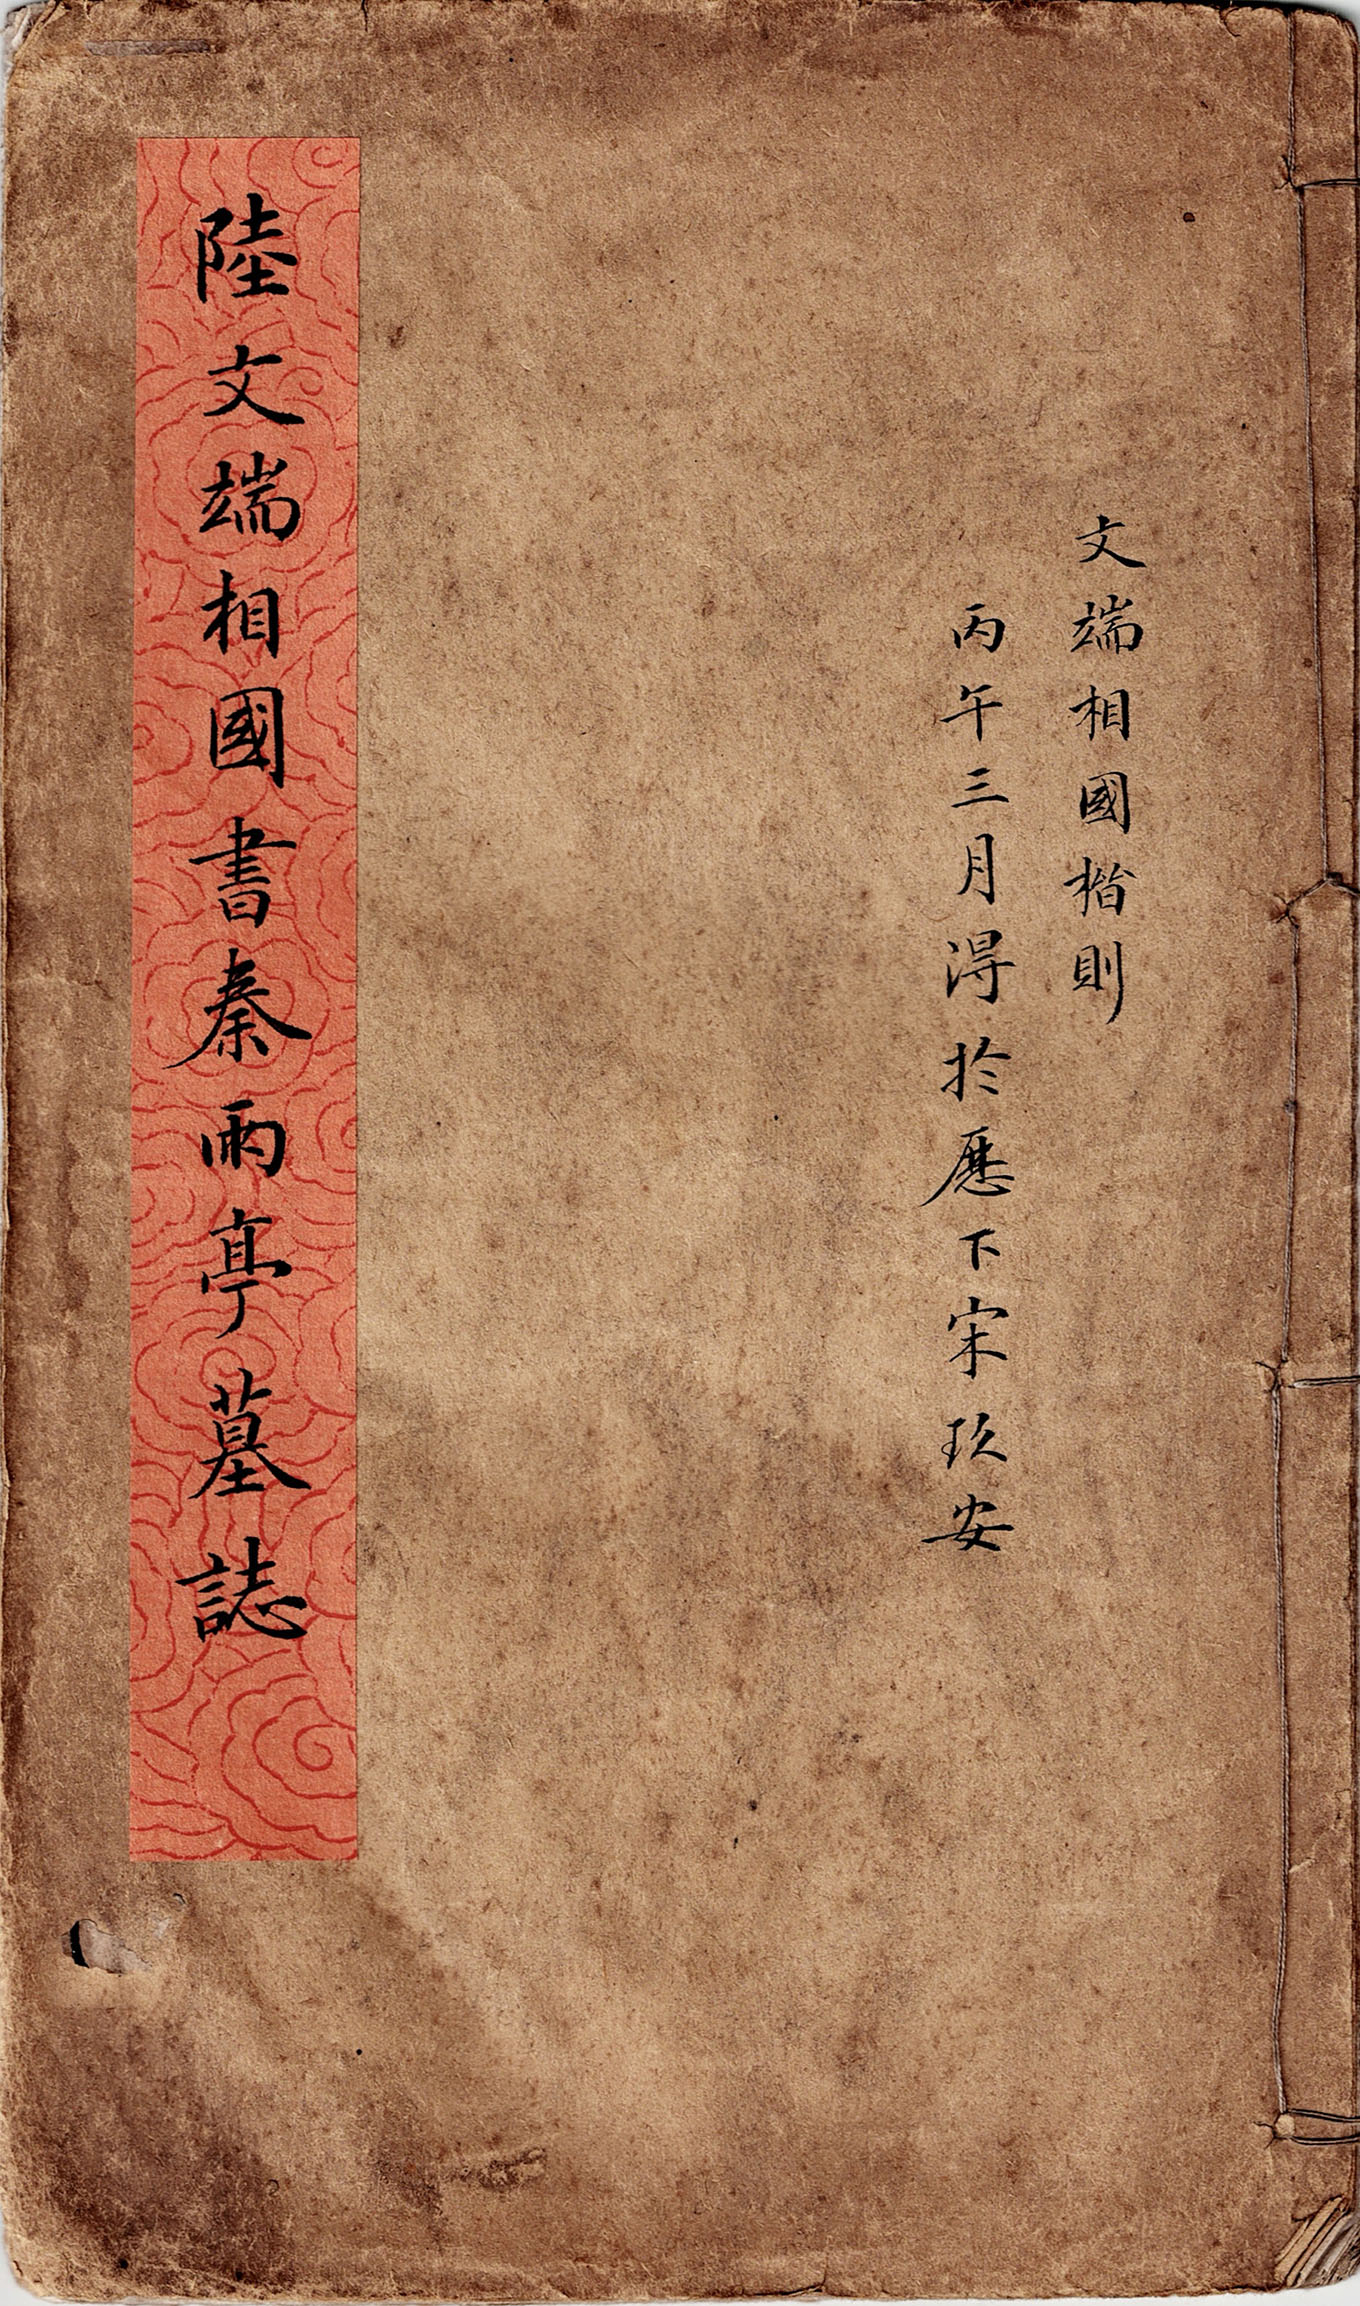 文端相國楷則
丙午三月淂於歷下宋玖安
陸文端相國書秦雨亭墓誌